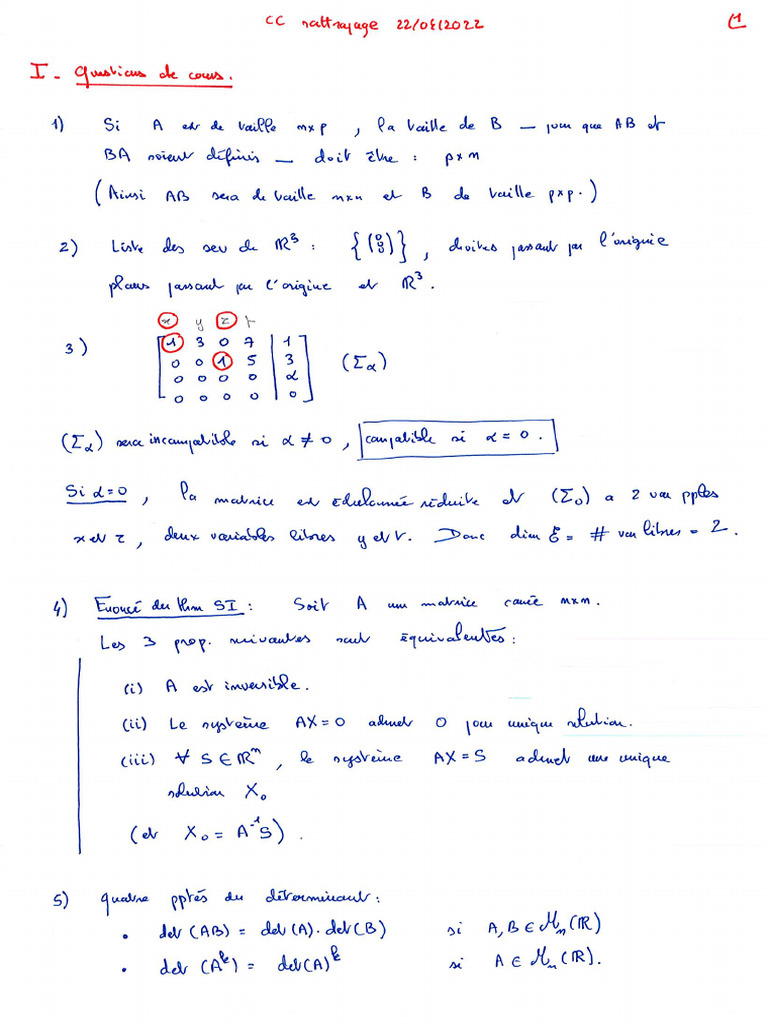 CC rattrapage 22/06/2022 (1
I - Questions de cours.
1) Si A est de taille n×p , la taille de B — pour que AB et
BA soient définis — doit être : p×n
(Ainsi AB sera de taille n×n et B de taille p×p.)
2) Liste des sev de ℝ³ : {(0 0 0)} , droites passant par l'origine
plans passant par l'origine et ℝ³.
x y z t
3) [ 1 3 0 7 | 1 ]
[ 0 0 1 5 | 3 ] (Σα)
[ 0 0 0 0 | α ]
[ 0 0 0 0 | 0 ]
(Σα) sera incompatible si α ≠ 0 , compatible si α = 0 .
Si α=0 , la matrice est échelonnée réduite et (Σ₀) a 2 var pples
x et z , deux variables libres y et t. Donc dim ℰ = # var libres = 2.
4) Enoncé du thm SI : Soit A une matrice carrée n×n.
Les 3 prop. suivantes sont équivalentes :
(i) A est inversible.
(ii) Le système AX=0 admet 0 pour unique solution.
(iii) ∀ S ∈ ℝⁿ , le système AX=S admet une unique
solution X₀
(et X₀ = A⁻¹S) .
5) Quatre pptés du déterminant :
• det(AB) = det(A)·det(B) si A,B ∈ ℳₙ(ℝ)
• det(Aᵏ) = det(A)ᵏ si A ∈ ℳₙ(ℝ).